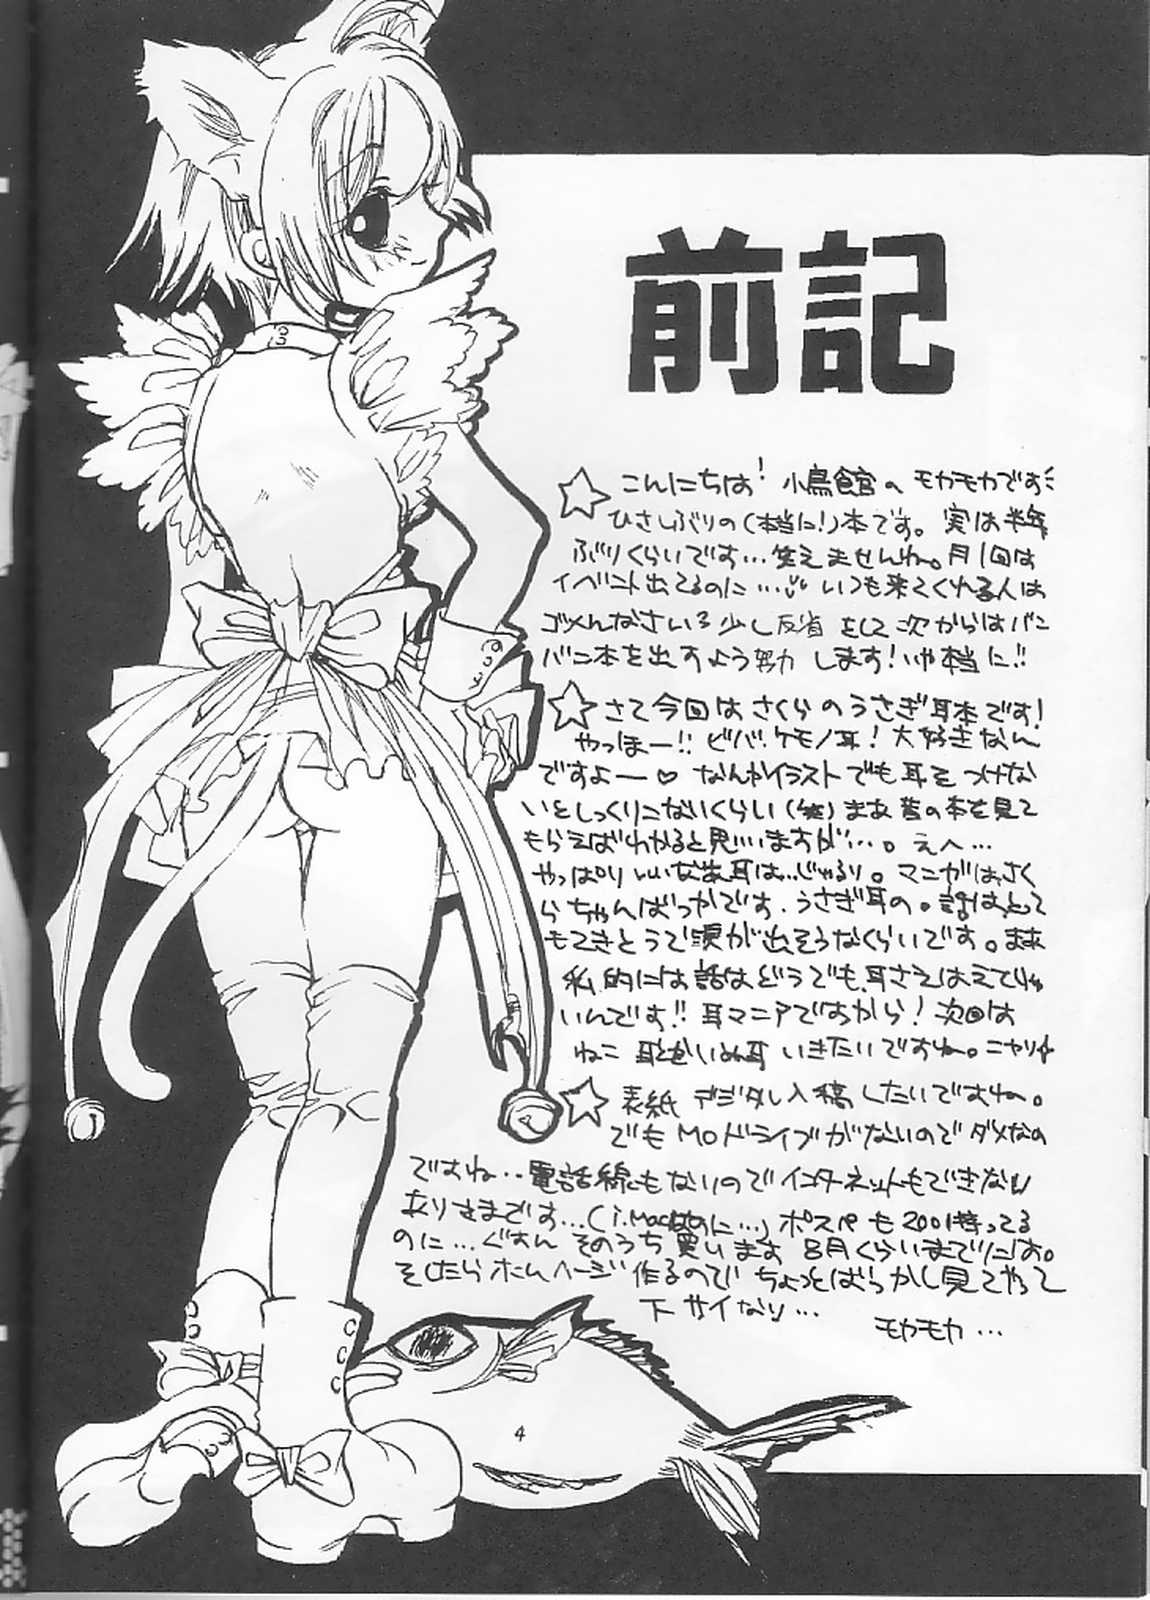 前記
☆こんにちは!小鳥館のモカモカです
ひさしぶりの(本当に!)本です。実は半年
ぶりくらいです…笑えませんね。月1回は
イベント出てるのに…いつも来てくれる人は
ゴメんなさい 少し反省をして次からはバン
バン本を出すよう努力します!いや本当に!!
☆さて今回はさくらのうさぎ耳本です!
やっほー!!ビバ.ケモノ耳!大好きなん
ですよー♡なんかイラストでも耳をつけな
いとしっくりこないくらい(笑)まあ昔の本を見て
もらえばわかると思いますが…。えへ…
やっぱりいいなあ耳は…じゃるり。マンガはさく
らちゃんばっかです.うさぎ耳の。話はとって
もてきとうで涙が出そうなくらいです。まあ
私的には話はどうでも耳さえはえてりゃ
いんです!!耳マニアですから!次回は
ねこ耳とかいぬ耳いきたいですね。ニヤリ
☆表紙デジタル入稿したいですね。
でもMOドライブがないのでダメなの
ですね…電話線もないのでインターネットもできない
ありさまです…(i.Macなのに…)ポスペも2001持ってる
のに…ぐすん そのうち買います 8月くらいまでには。
そしたらホームページ作るのでちょっとばかし見てやって
下サイなり…
モカモカ…
4